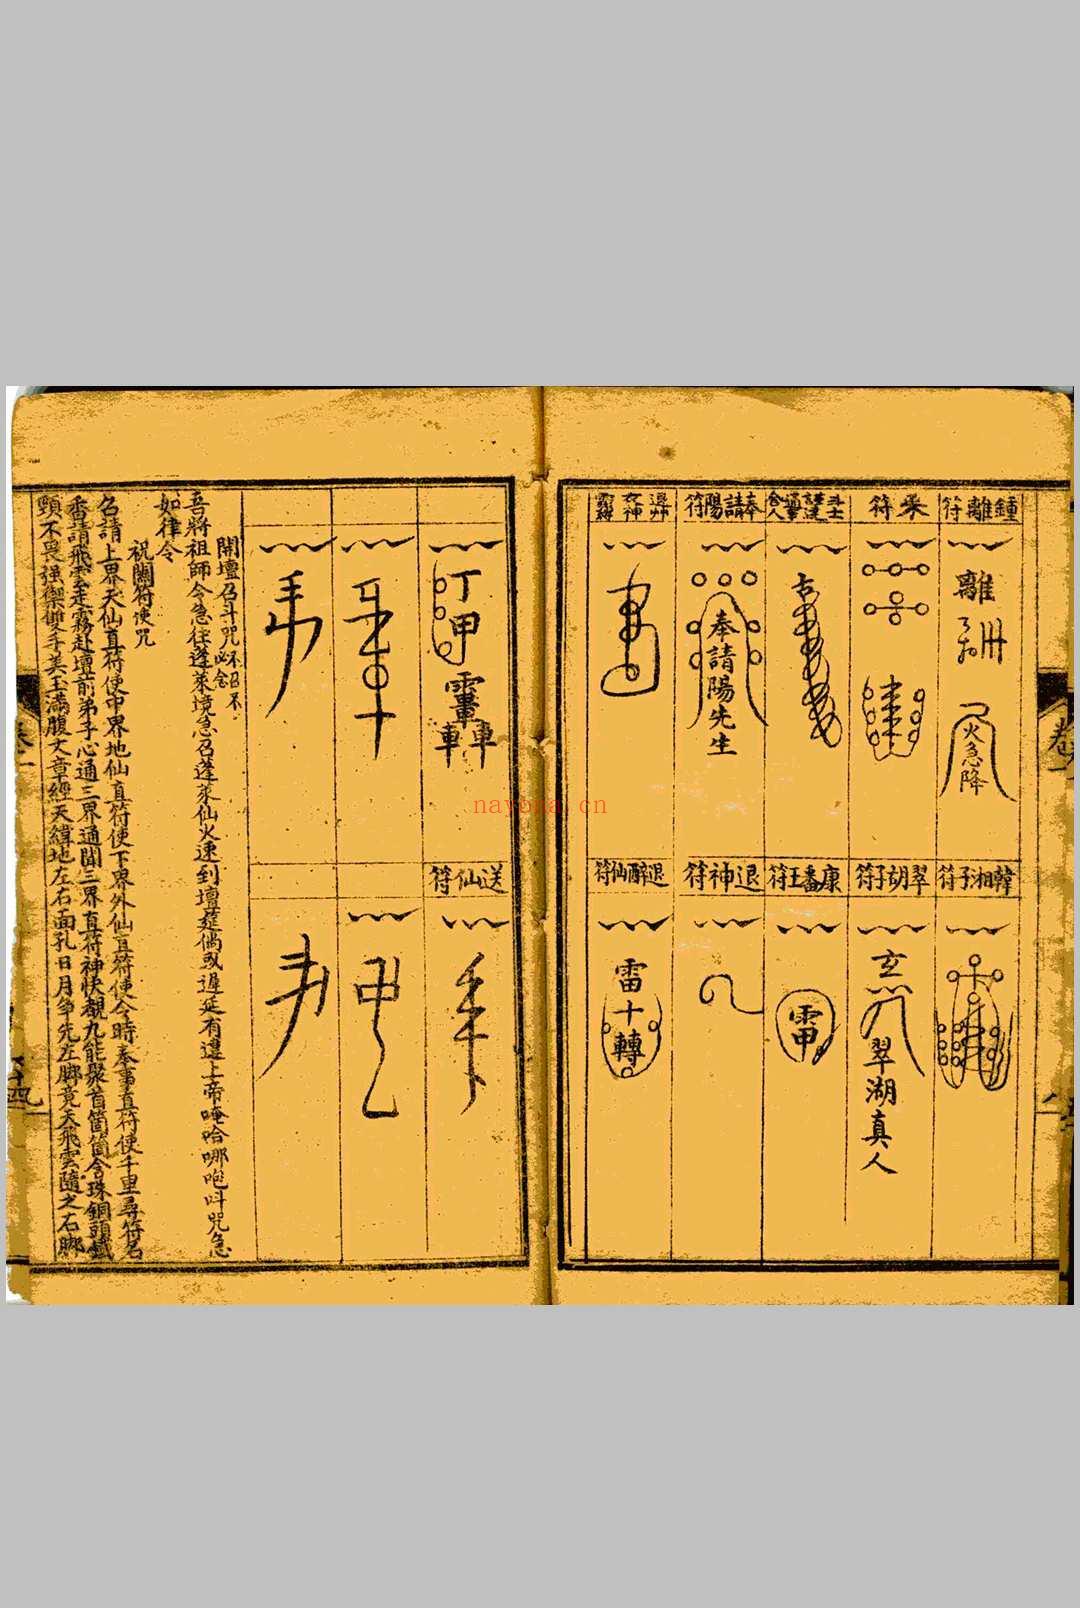 鍾離符
離
火急降
乘符
奉請陽符
奉請陽先生
韓湘子符
翠胡子符
玄
翠湖真人
康番王符
雷
退神符
退醉仙符
雷十轉
丁甲
送仙符
開壇召斗咒
吾將祖師令急往蓬萊境急召蓬萊仙火速到壇筵倘或遲延有違上帝唵哈哪咆吽咒急
如律令
祝闔符使咒
召請上界天仙真符使中界地仙真符使下界外仙真符使今時奉事真符使千里尋符名
香請飛雲走霧赴壇前弟子心通三界通聞三界真符神快覩九能聚首箇箇含珠銅頭鐵
頸不畏強禦雙手美玉滿腹文章經天緯地左右面孔日月爭先左脚竟天飛雲隨之右脚
卷一
nayona.cn